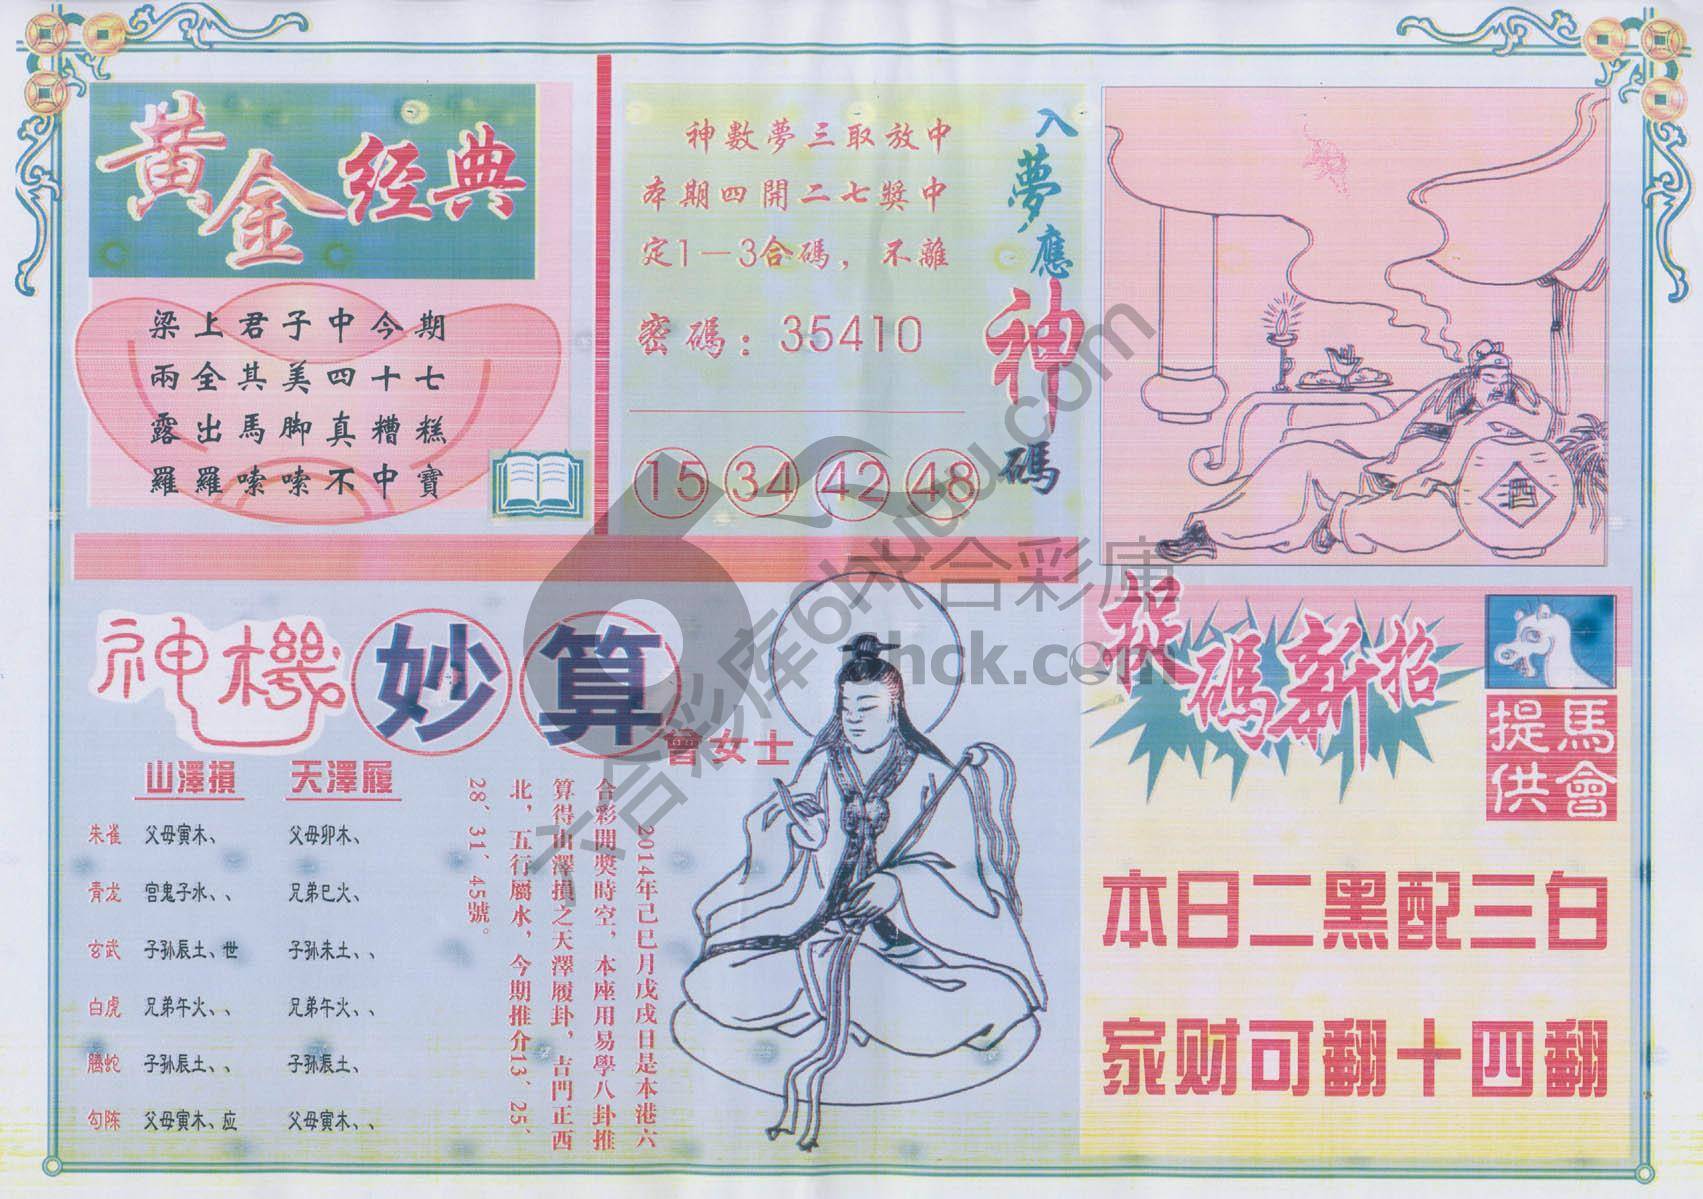 黃金经典
梁上君子中今期
兩全其美四十七
露出馬脚真糟糕
羅羅嗦嗦不中寶
神數夢三取放中
本期四開二七獎中
定1－3合碼，不離
密碼：35410
15 34 42 48
入夢應神碼
酒
神機妙算
曾女士
山澤損 天澤履
朱雀 父母寅木、 父母卯木、
青龙 宫鬼子水、、 兄弟巳火、
玄武 子孙辰土、世 子孙未土、、
白虎 兄弟午火、、 兄弟午火、、
騰蛇 子孙辰土、、 子孙辰土、
勾陈 父母寅木、应 父母寅木、、
2014年己巳月戊戌日是本港六
合彩開奬時空，本座用易學八卦推
算得山澤損之天澤履卦，吉門正西
北，五行屬水，今期推介13、25、
28、31、45號。
捉碼新招
馬會
提供
本日二黑配三白
家财可翻十四翻
六合彩库6huuu.com
六合彩库
hck.com